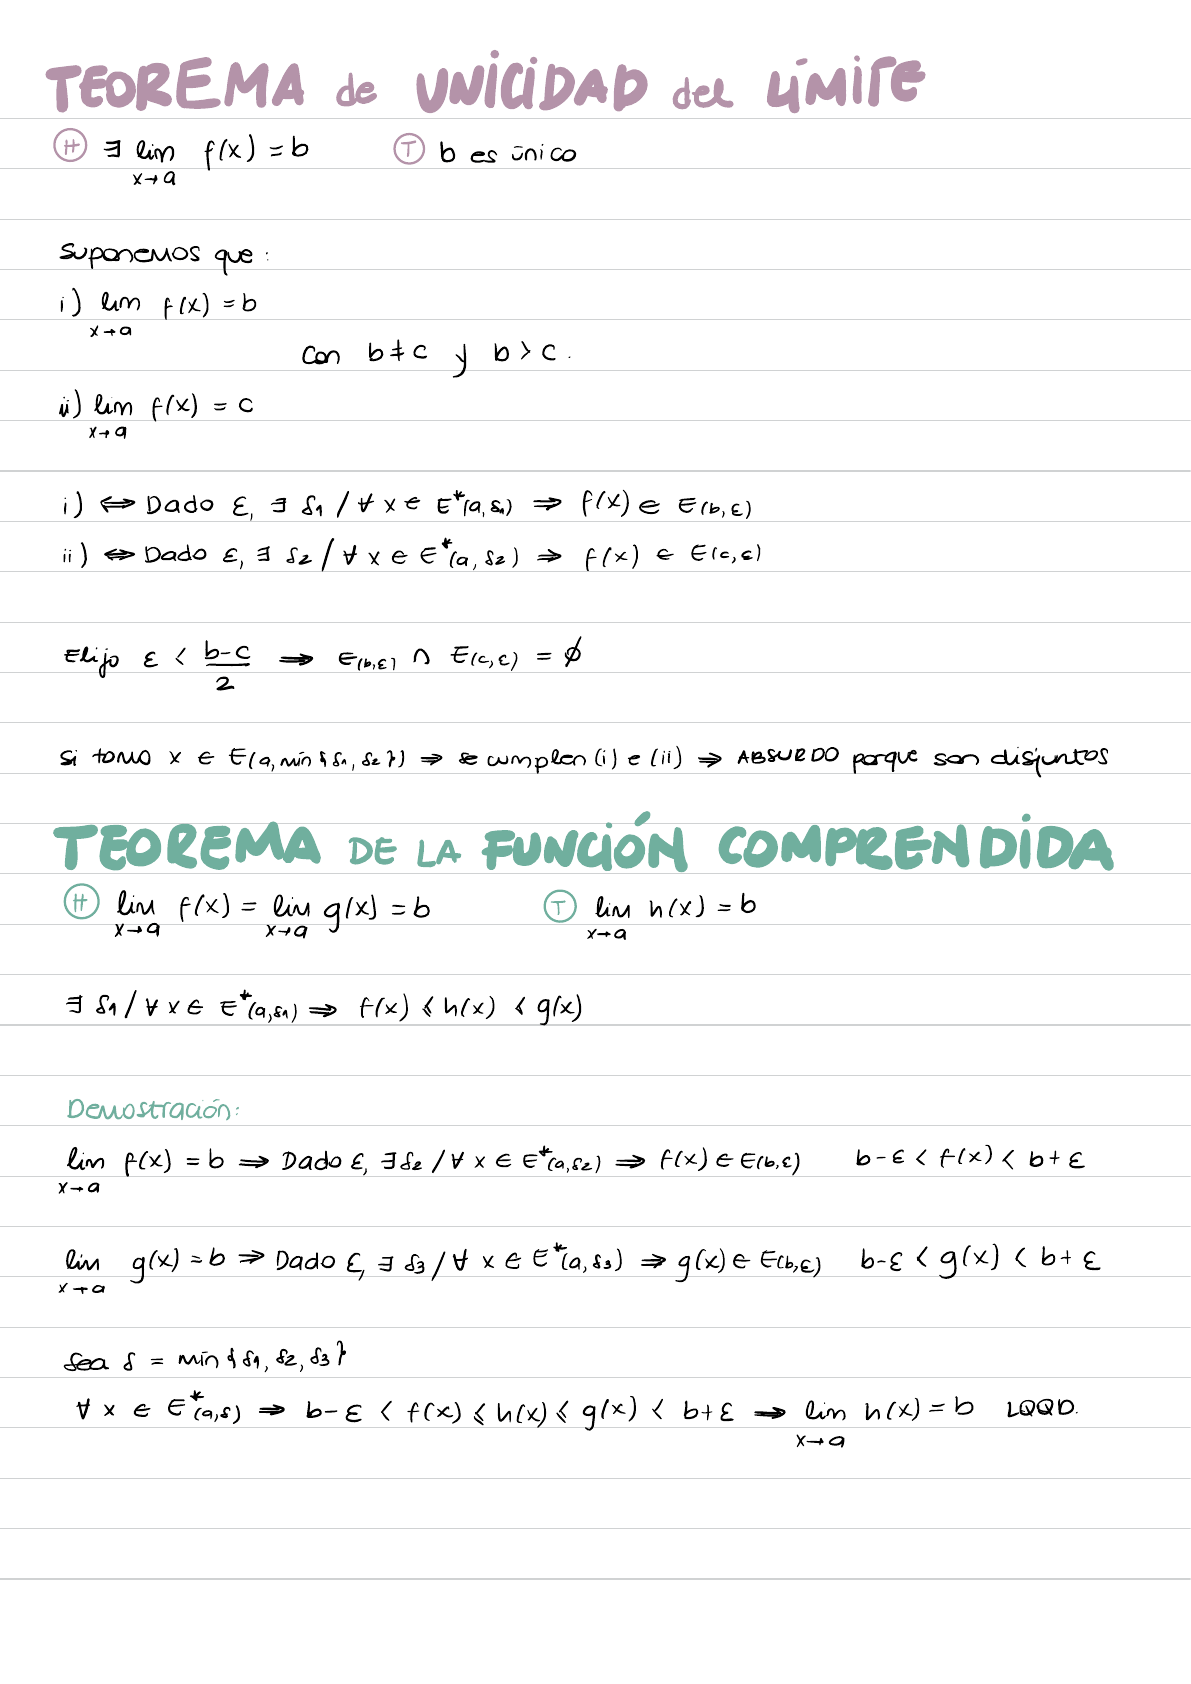 TEOREMA de UNICIDAD del LÍMITE
Ⓗ ∃ lim f(x) = b Ⓣ b es único
x→a
Suponemos que:
i) lim f(x) = b
x→a
Con b≠c y b>c.
ii) lim f(x) = c
x→a
i) ⇔ Dado ε, ∃ δ1 / ∀ x ∈ E*(a,δ1) ⇒ f(x) ∈ E(b,ε)
ii) ⇔ Dado ε, ∃ δ2 / ∀ x ∈ E*(a,δ2) ⇒ f(x) ∈ E(c,ε)
Elijo ε < b-c/2 ⇒ E(b,ε) ∩ E(c,ε) = ∅
Si tomo x ∈ E(a, mín{δ1, δ2}) ⇒ se cumplen (i) e (ii) ⇒ ABSURDO porque son disjuntos
TEOREMA DE LA FUNCIÓN COMPRENDIDA
Ⓗ lim f(x) = lim g(x) = b Ⓣ lim h(x) = b
x→a x→a x→a
∃ δ1 / ∀ x ∈ E*(a,δ1) ⇒ f(x) ≤ h(x) ≤ g(x)
Demostración:
lim f(x) = b ⇒ Dado ε, ∃ δ2 / ∀ x ∈ E*(a,δ2) ⇒ f(x) ∈ E(b,ε) b-ε < f(x) < b+ε
x→a
lim g(x) = b ⇒ Dado ε, ∃ δ3 / ∀ x ∈ E*(a,δ3) ⇒ g(x) ∈ E(b,ε) b-ε < g(x) < b+ε
x→a
Sea δ = mín{δ1, δ2, δ3}
∀ x ∈ E*(a,δ) ⇒ b-ε < f(x) ≤ h(x) ≤ g(x) < b+ε ⇒ lim h(x) = b LQQD.
x→a